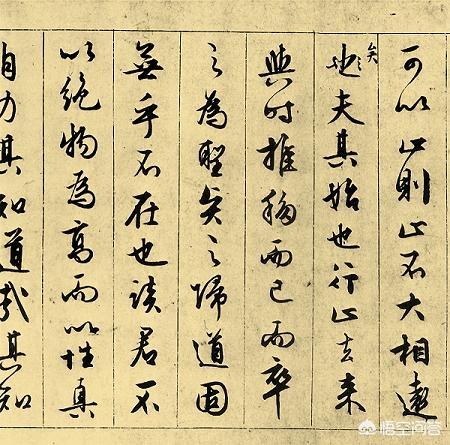 可以止則止不大相遠
矣
也夫其始也行止去来
與时推移而已而卒
之為聖矣之歸道固
無乎不在也談君不
以絶物為高而以性真
自其知道哉其知
悟空问答